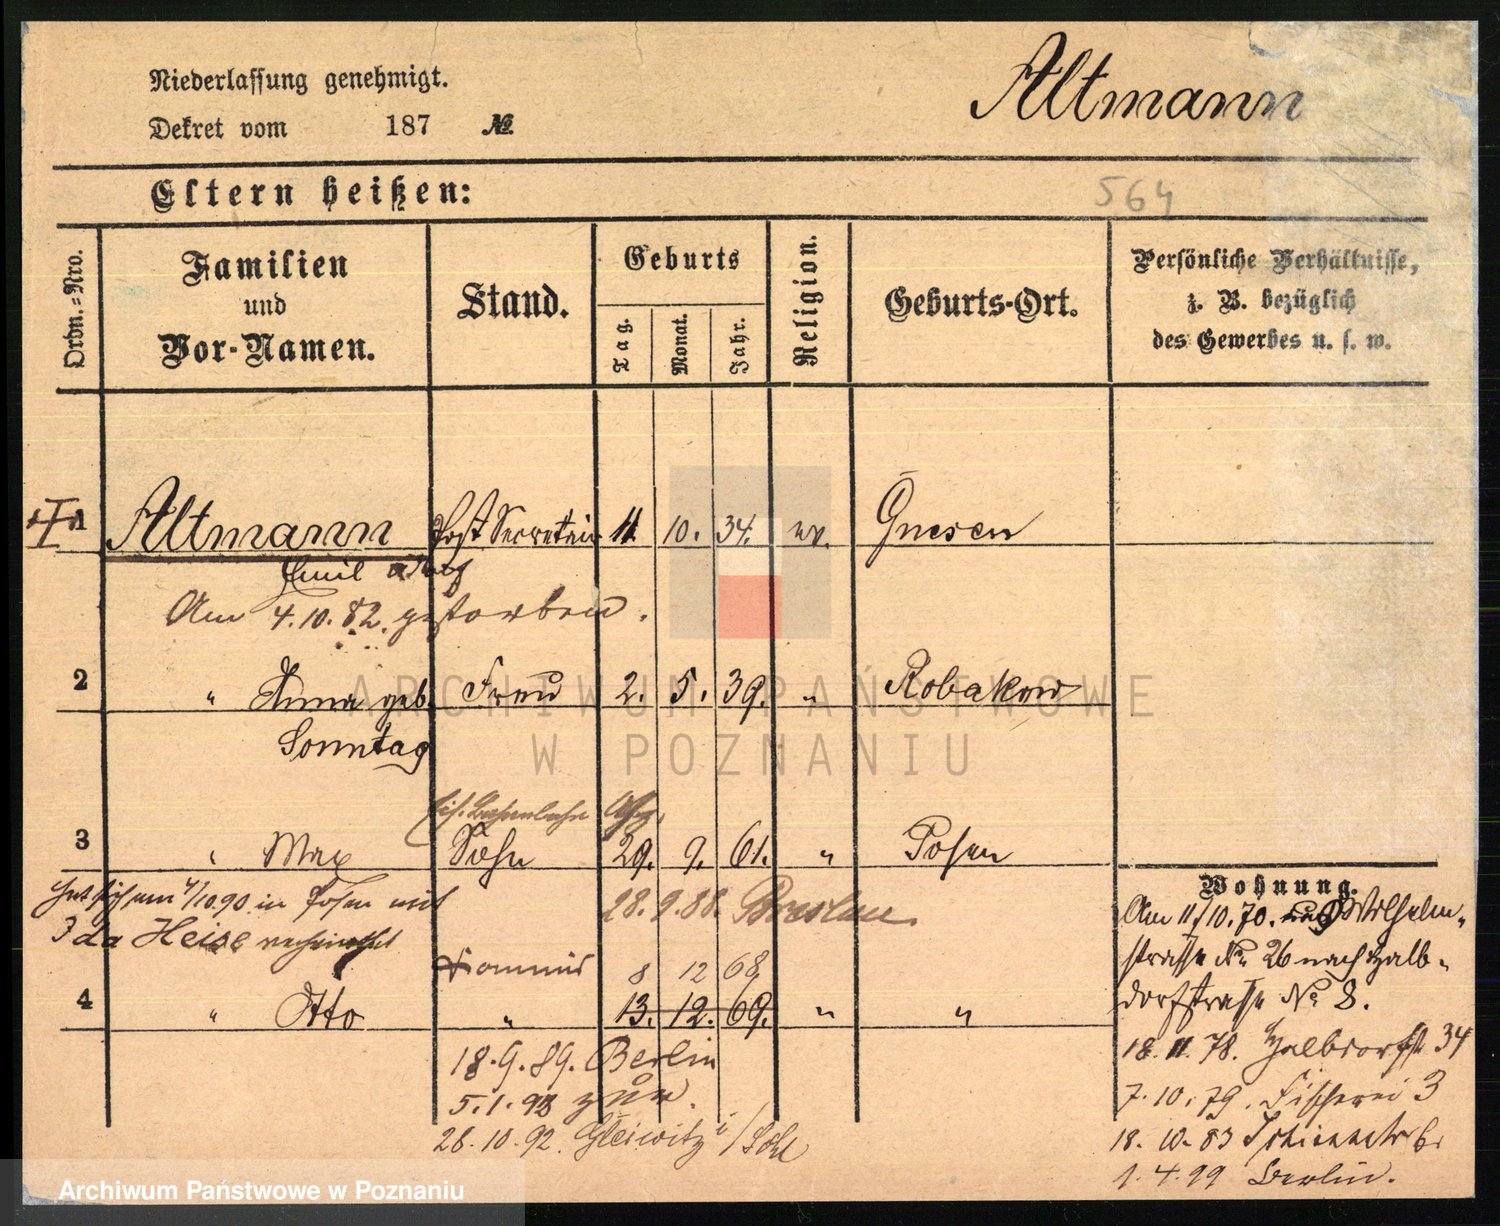 Niederlassung genehmigt.
Altmann
Dekret vom 187 №
Eltern heißen:
564
Ordn.-Nro.
Familien
und
Vor-Namen.
Stand.
Geburts
Tag.
Monat.
Jahr.
Religion.
Geburts-Ort.
Persönliche Verhältnisse,
z. B. bezüglich
des Gewerbes u. s. w.
1 Altmann Post Secretair 11. 10. 34. ev. Gnesen
Emil
Am 4.10.82. gestorben.
2 " Anna geb. Frau 2. 5. 39. " Robakow
Sonntag
3 " Max Sohn 29. 9. 61. " Posen
Hat sich am 4/10.90 in Posen mit
28.9.88. Breslau
Ida Heise verheirathet
8 12 68
4 " Otto " 13. 12. 69. " "
18.9.89. Berlin
5.1.92 zur.
28.10.92. Gleiwitz
Wohnung.
Am 11/10.70. Wilhelm-
strasse No 26 nach Halb-
dorfstrasse No 8.
18.11.78. Halbdorfstr 34
7.10.79. Fischerei 3
18.10.83
1.4.99 Berlin.
ARCHIWUM PAŃSTWOWE
W POZNANIU
Archiwum Państwowe w Poznaniu